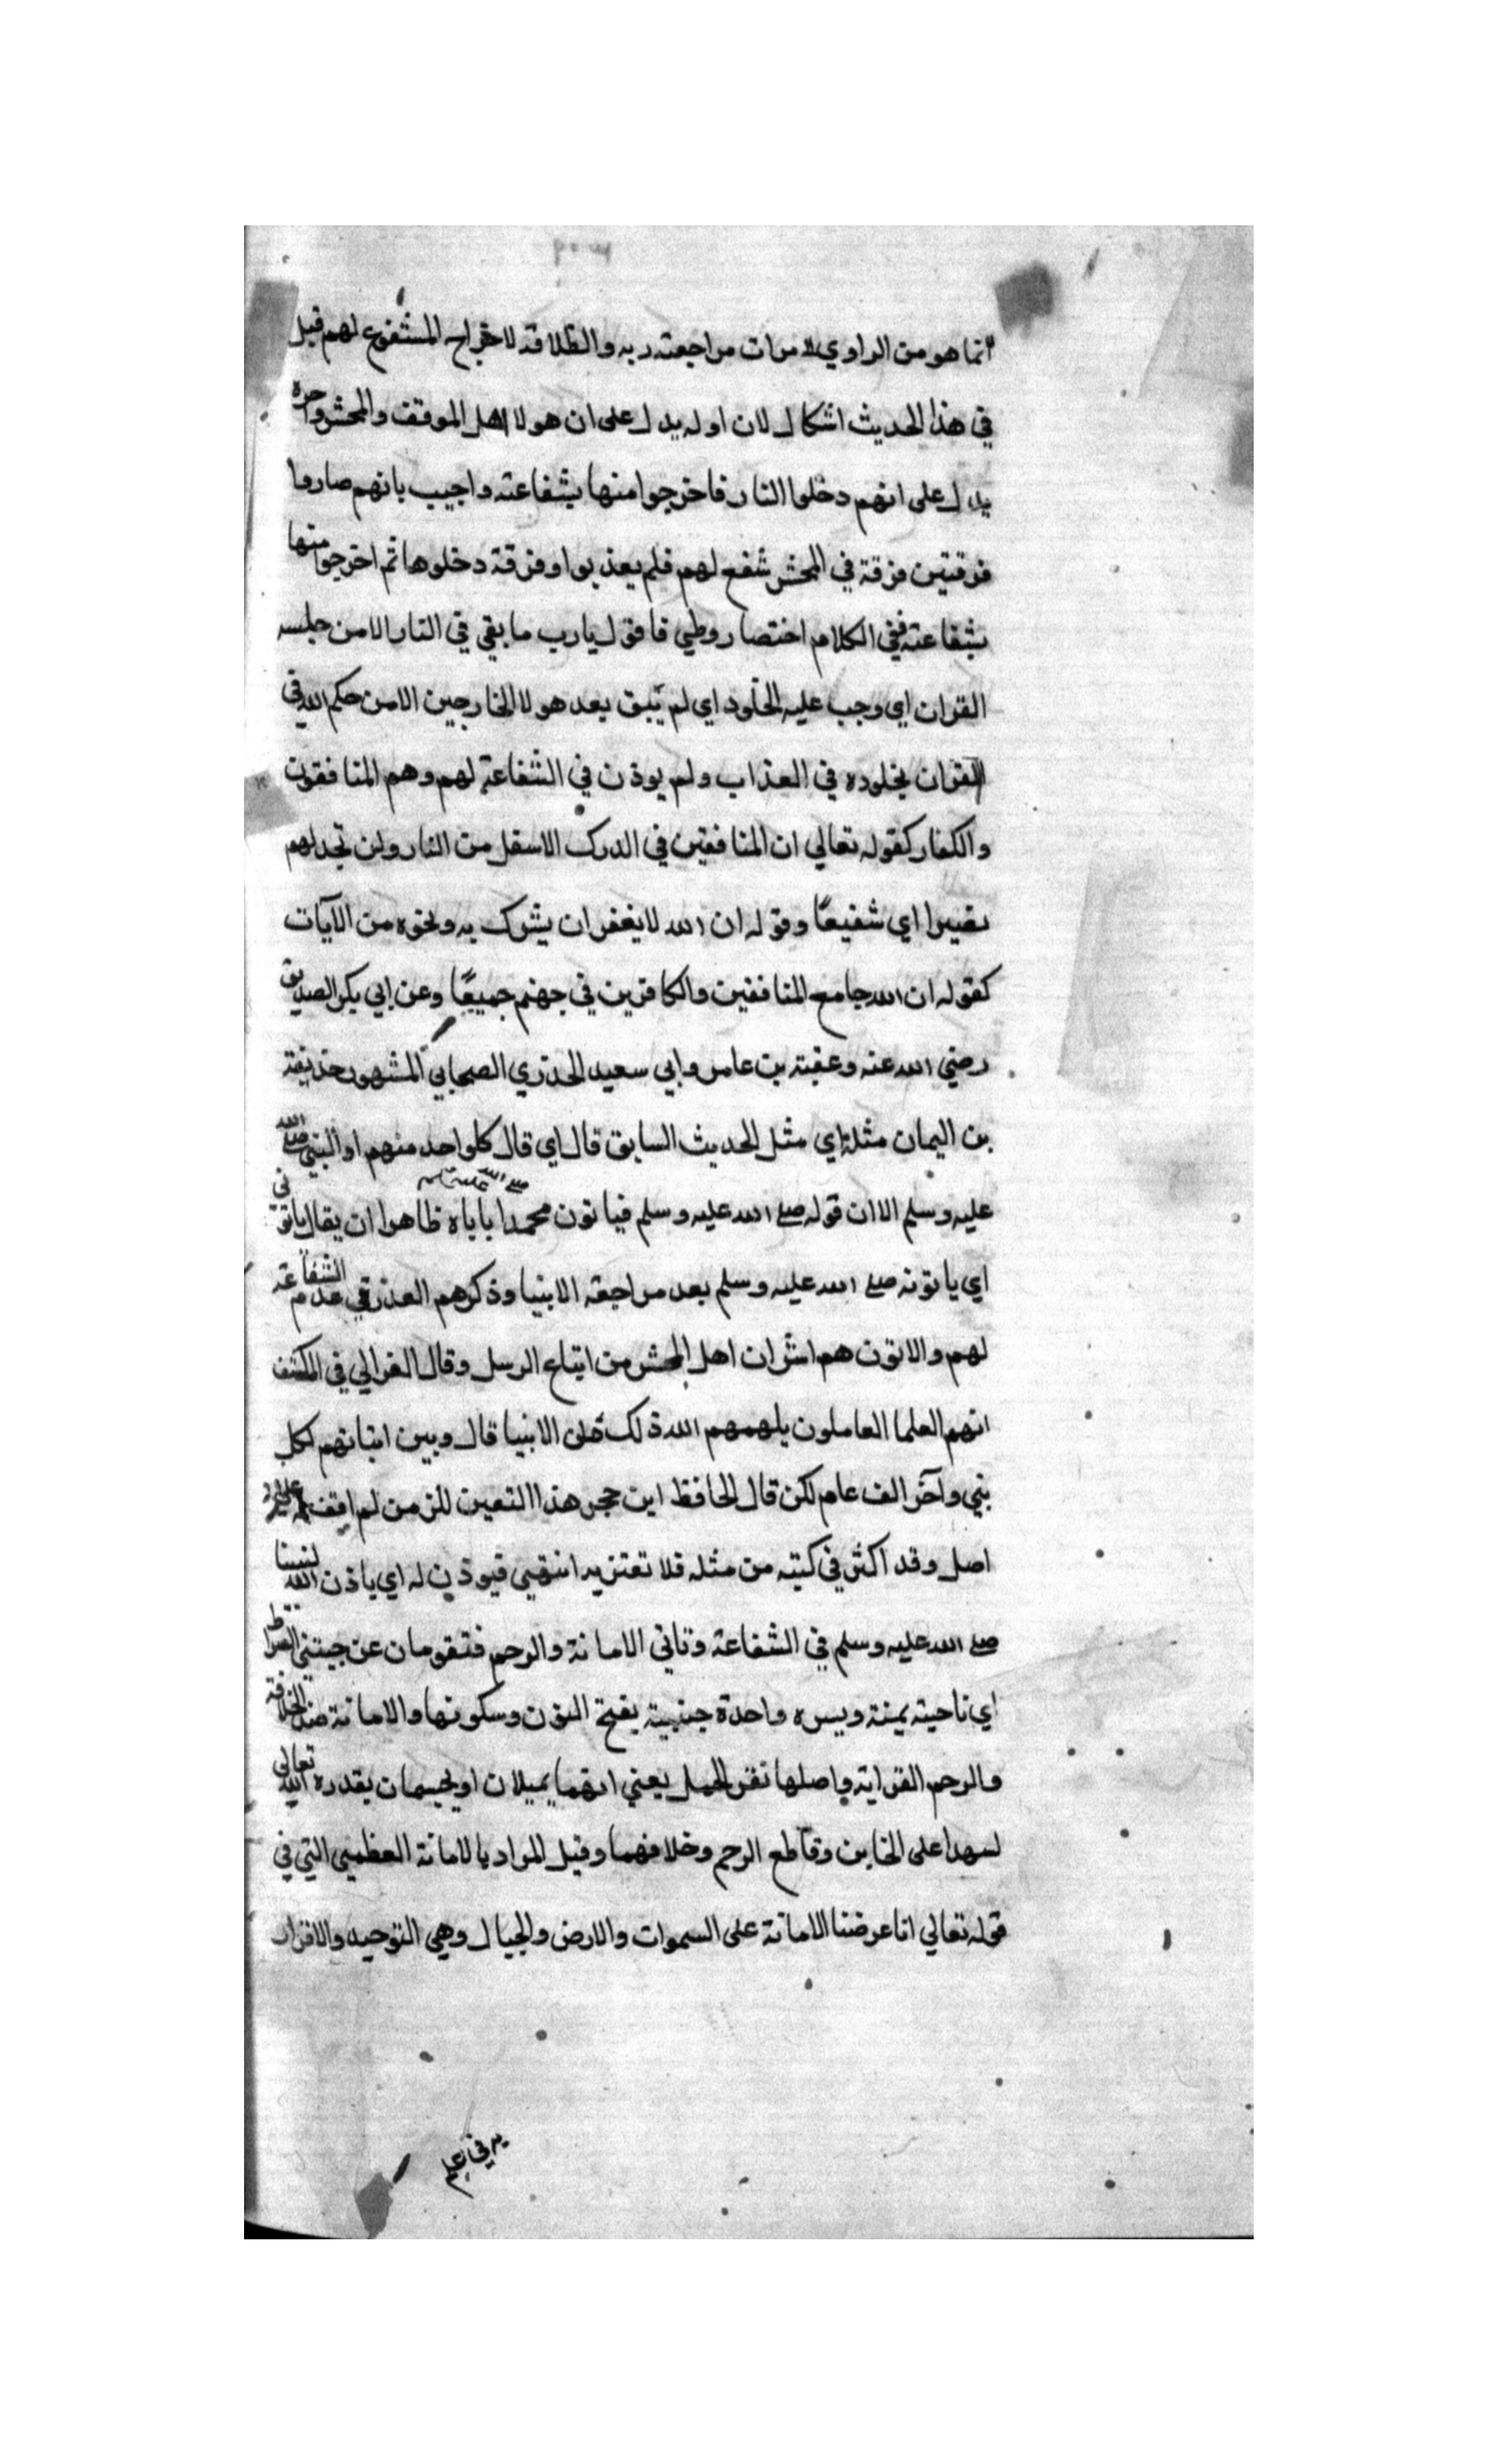 انما هو من الراوي لا مرات مراجعته ربه وانطلاقه لاخراج المشفوع لهم قيل
في هذا الحديث اشكال لان اوله يدل على ان هولا اهل الموقف والمحشر واخره
يدل على انهم دخلوا النار فاخرجوا منها بشفاعته واجيب بانهم صاروا
فرقتين فرقة في المحشر شفع لهم فلم يعذبوا وفرقة دخلوها ثم اخرجوا منها
بشفاعته ففي الكلام اختصار وطي فاقول يارب ما بقي في النار الا من حبسه
القران اي وجب عليه الخلود اي لم يبق بعد هولا الخارجين الا من حكم الله في
القران بخلوده في العذاب ولم يوذن في الشفاعة لهم وهم المنافقون
والكفار كقوله تعالي ان المنافقين في الدرك الاسفل من النار ولن تجد لهم
نصيرا اي شفيعًا وقوله ان الله لا يغفر ان يشرك به ونحوه من الآيات
كقوله ان الله جامع المنافقين والكافرين في جهنم جميعًا وعن ابي بكر الصديق
رضي الله عنه وعقبة بن عامر وابي سعيد الخدري الصحابي المشهور حذيفة
بن اليمان مثله اي مثل الحديث السابق قال اي قال كل واحد منهم او النبي صلى الله
عليه وسلم الا ان قوله صلى الله عليه وسلم فياتون محمدا صلى الله عليه وسلم ياباه ظاهرا ان يقال ياتوني
اي ياتونه صلى الله عليه وسلم بعد مراجعة الانبيا وذكرهم العذر في عدم الشفاعة
لهم والاتون هم اشران اهل المحشر من اتباع الرسل وقال الغزالي في الكشف
انهم العلما العاملون يلهمهم الله ذلك الانبيا قال وبين اتيانهم لكل
نبي وآخر الف عام لكن قال الحافظ ابن حجر هذا التعين للزمن لم اقف له على
اصل وقد اكثر في كتبه من مثله فلا تغتر به انتهي فيوذن له اي ياذن الله لنبينا
صلى الله عليه وسلم في الشفاعة وتاتي الامانة والرحم فتقومان عن جنبتي الصراط
اي ناحيته يمنة ويسره واحدة جنبية بفتح النون وسكونها والامانة ضد الخلافة
والرحم القرابة واصلها نقر الحمل يعني انهما يميلان او يجسمان بقدرة الله تعالى
لسهدا على الخاين وقاطع الرحم وخلافهما وقيل المراد بالامانة العظمي التي في
قوله تعالي انا عرضنا الامانة على السموات والارض والجبال وهي التوحيد والاقرار